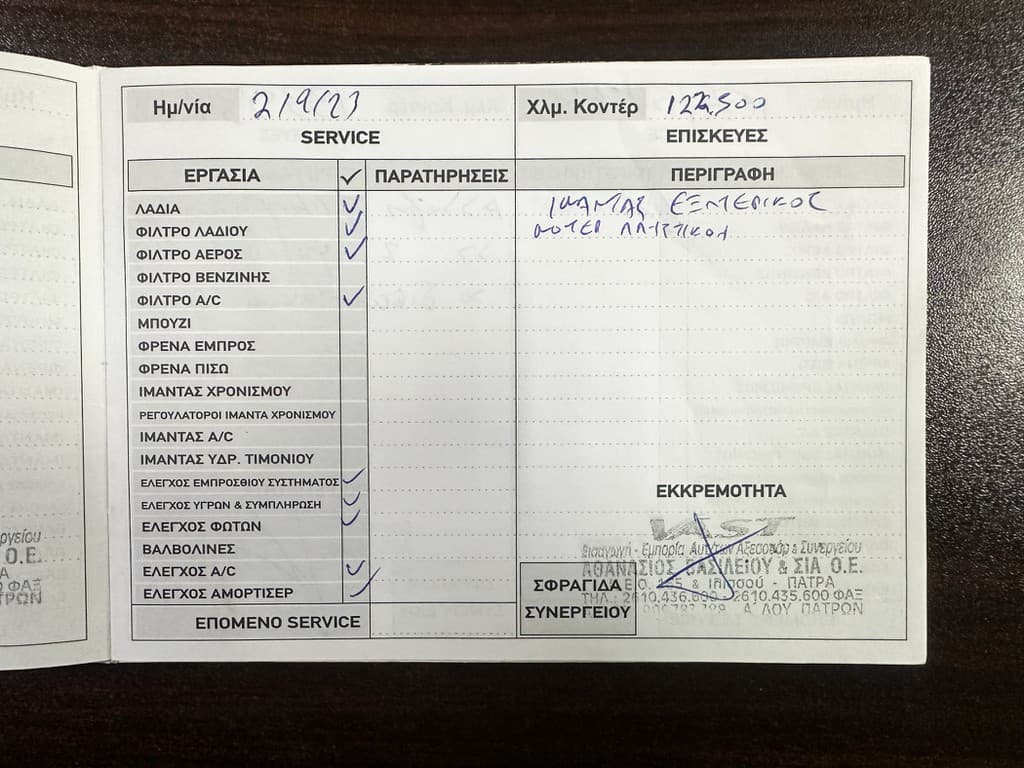 Ημ/νία 2/9/23
Χλμ. Κοντέρ 122.500
SERVICE
ΕΠΙΣΚΕΥΕΣ
ΕΡΓΑΣΙΑ ✓ ΠΑΡΑΤΗΡΗΣΕΙΣ
ΠΕΡΙΓΡΑΦΗ
ΛΑΔΙΑ ✓
ΦΙΛΤΡΟ ΛΑΔΙΟΥ ✓
ΦΙΛΤΡΟ ΑΕΡΟΣ ✓
ΦΙΛΤΡΟ ΒΕΝΖΙΝΗΣ
ΦΙΛΤΡΟ A/C ✓
ΜΠΟΥΖΙ
ΦΡΕΝΑ ΕΜΠΡΟΣ
ΦΡΕΝΑ ΠΙΣΩ
ΙΜΑΝΤΑΣ ΧΡΟΝΙΣΜΟΥ
ΡΕΓΟΥΛΑΤΟΡΟΙ ΙΜΑΝΤΑ ΧΡΟΝΙΣΜΟΥ
ΙΜΑΝΤΑΣ A/C
ΙΜΑΝΤΑΣ ΥΔΡ. ΤΙΜΟΝΙΟΥ
ΕΛΕΓΧΟΣ ΕΜΠΡΟΣΘΙΟΥ ΣΥΣΤΗΜΑΤΟΣ ✓
ΕΛΕΓΧΟΣ ΥΓΡΩΝ & ΣΥΜΠΛΗΡΩΣΗ ✓
ΕΛΕΓΧΟΣ ΦΩΤΩΝ ✓
ΒΑΛΒΟΛΙΝΕΣ
ΕΛΕΓΧΟΣ A/C ✓
ΕΛΕΓΧΟΣ ΑΜΟΡΤΙΣΕΡ ✓
ΕΠΟΜΕΝΟ SERVICE
ΙΜΑΝΤΑΣ ΕΞΩΤΕΡΙΚΟΣ
ΕΚΚΡΕΜΟΤΗΤΑ
Εισαγωγή - Εμπορία Αυτ/των Αξεσουάρ & Συνεργείου
ΑΘΑΝΑΣΙΟΣ ΒΑΣΙΛΕΙΟΥ & ΣΙΑ Ο.Ε.
ΠΑΤΡΑ
ΤΗΛ.: 2610.436.600 - 2610.435.600 ΦΑΞ
Α' ΔΟΥ ΠΑΤΡΩΝ
ΣΦΡΑΓΙΔΑ
ΣΥΝΕΡΓΕΙΟΥ
ργείου
Ο.Ε.
Α
ΦΑΞ
ΤΡΩΝ